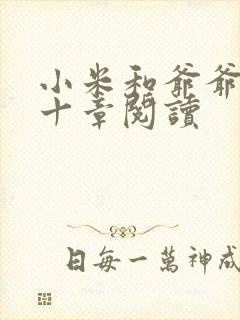 小米和爺爺
十章閱讀
日每一萬神成